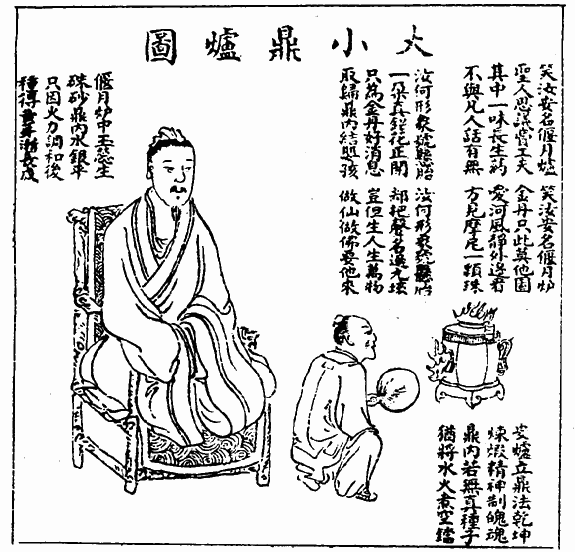 大小鼎爐圖
笑汝安名偃月爐
聖人思議嘗工夫
其中一味長生药
不與凡人話有無
笑汝安名偃月炉
金丹只此莫他圖
愛河風靜外邊看
方見摩尼一顆珠
汝何形象號懸胎
一朶真鉛花正開
只為金丹好消息
取歸鼎內結嬰孩
汝何形象號懸胎
却把聲名遍九垓
豈但生人生萬物
做仙做佛要他來
偃月炉中玉蕊生
硃砂鼎內水銀平
只因火力調和後
種得黃芽漸長成
安爐立鼎法乾坤
煉煅精神制魄魂
鼎內若無真種子
猶將水火煮空鐺